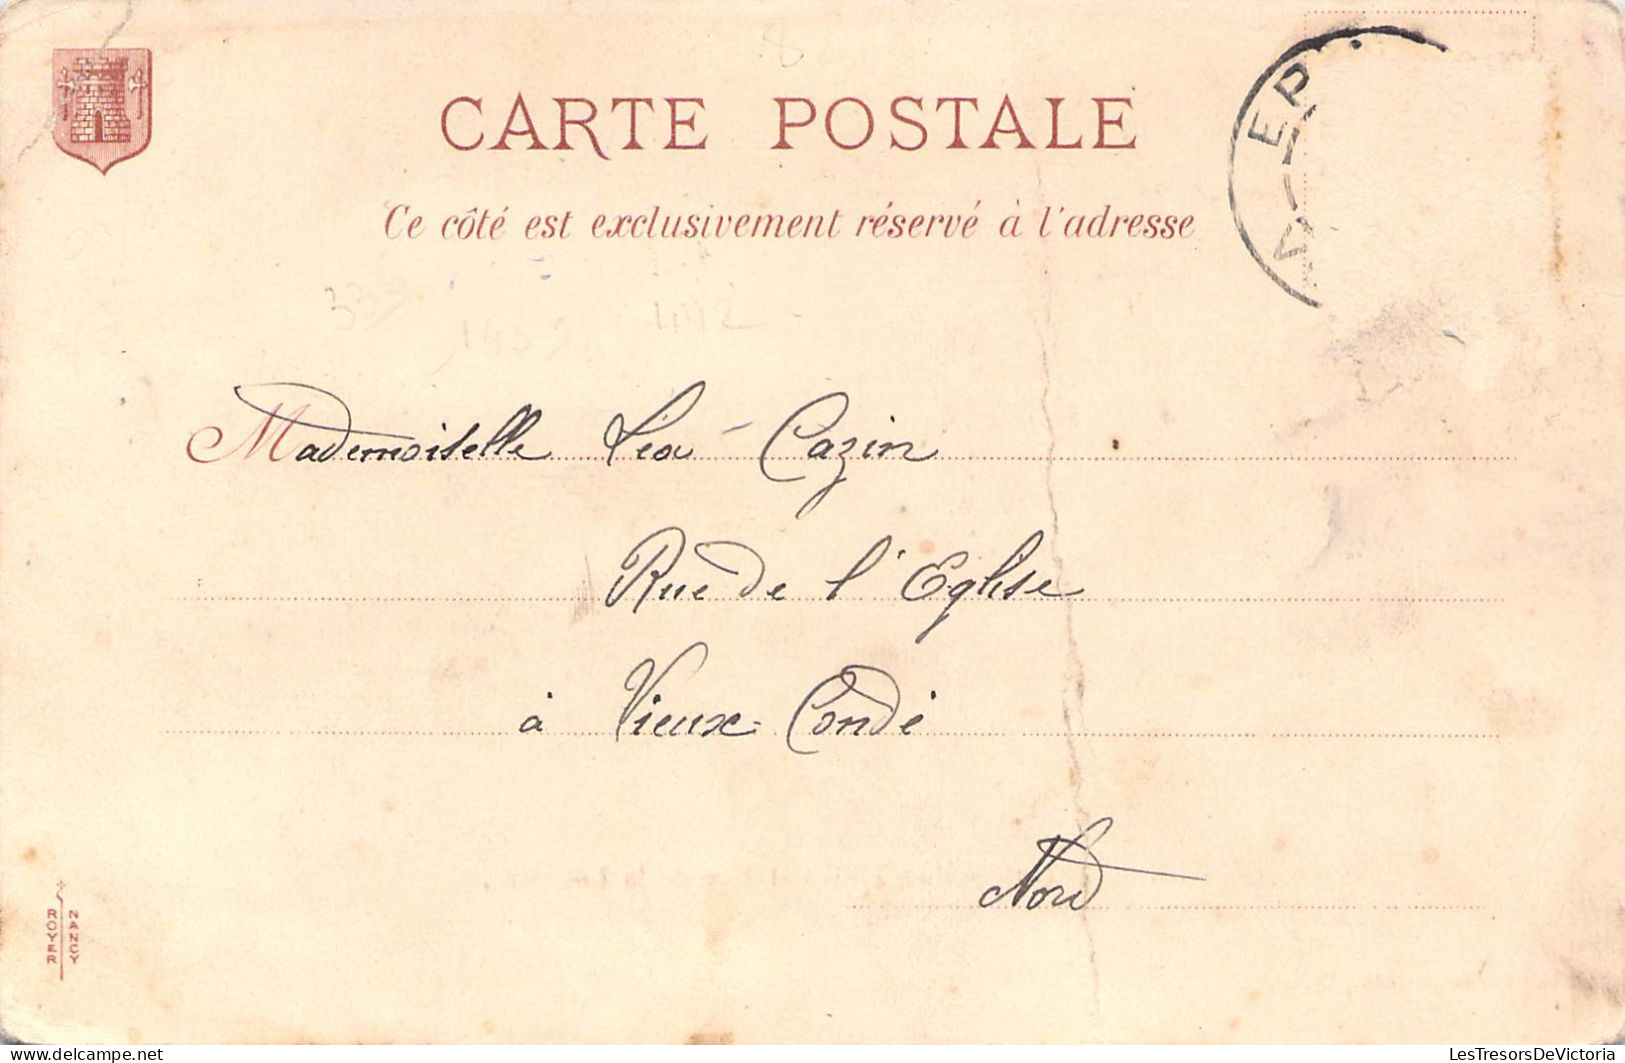 CARTE POSTALE
Ce côté est exclusivement réservé à l'adresse
Mademoiselle Léa Cazin
Rue de l'Eglise
à Vieux-Condé
Nord
ROYER
NANCY
www.delcampe.net
LesTresorsDeVictoria